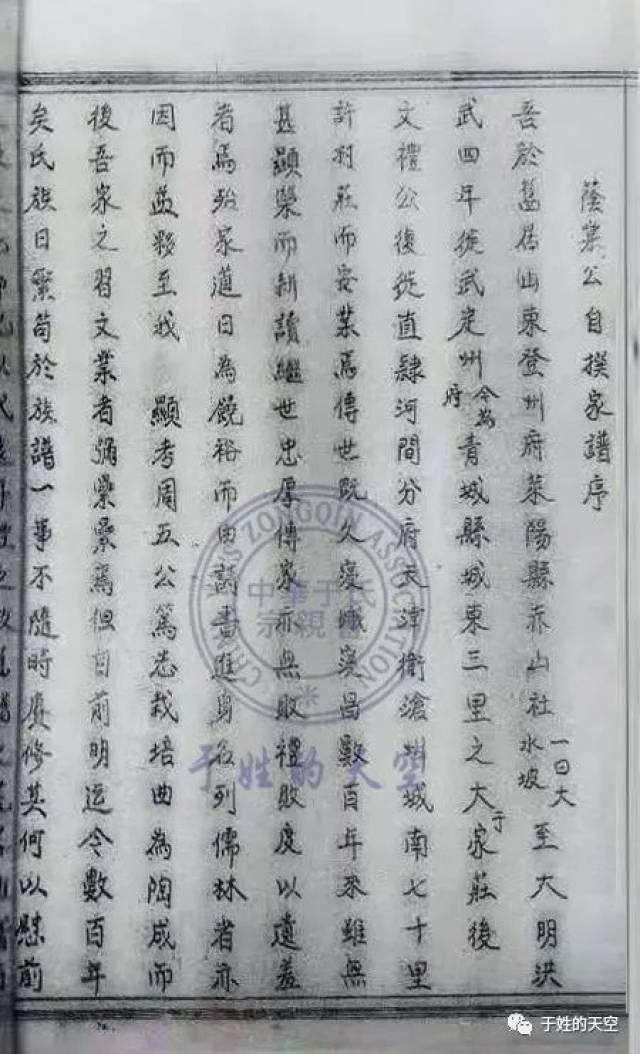 蔭棠公自撰家譜序
吾於舊居山東登州府萊陽縣赤山社 一曰大水坡 至大明洪
武四年從武定州 今為府 青城縣城東三里之大于家莊後
文禮公復從直隸河間分府天津衛滄州城南七十里
許孫莊而安業焉傳世既久寖熾寖昌數百年來雖無
甚顯榮而耕讀繼世忠厚傳家亦無敗禮敗度以遺羞
者焉殆家道日為饒裕而由詩書進身名列儒林者亦
因而益夥至我 顯考周五公篤志栽培曲為陶成而
後吾家之習文業者彌縈縈焉但自前明迄今數百年
矣氏族日繁苟於族譜一事不隨時賡修其何以慰前
CHINA'S ZONGQIN ASSOCIATION
中華于氏
宗親會
于姓的天空
于姓的天空